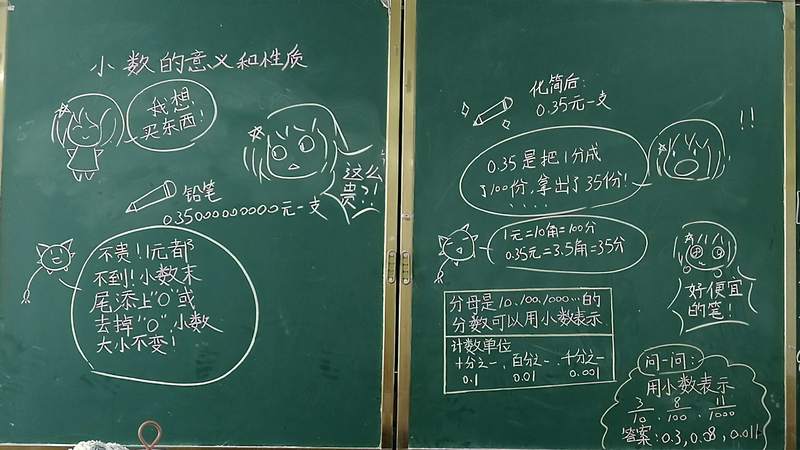 小数的意义和性质
我想
买东西!
这么
贵?!
铅笔
0.35000000000元一支
不贵!1元都
不到!小数末
尾添上"0"或
去掉"0",小数
大小不变!
化简后:
0.35元一支
!!
0.35是把1分成
了100份,拿出了35份!
1元=10角=100分
0.35元=3.5角=35分
好便宜
的笔!
分母是10、100、1000…的
分数可以用小数表示
计数单位
十分之一、百分之一、千分之一
0.1 0.01 0.001
问一问:
用小数表示
3/10、8/100、11/1000
答案:0.3,0.08,0.011